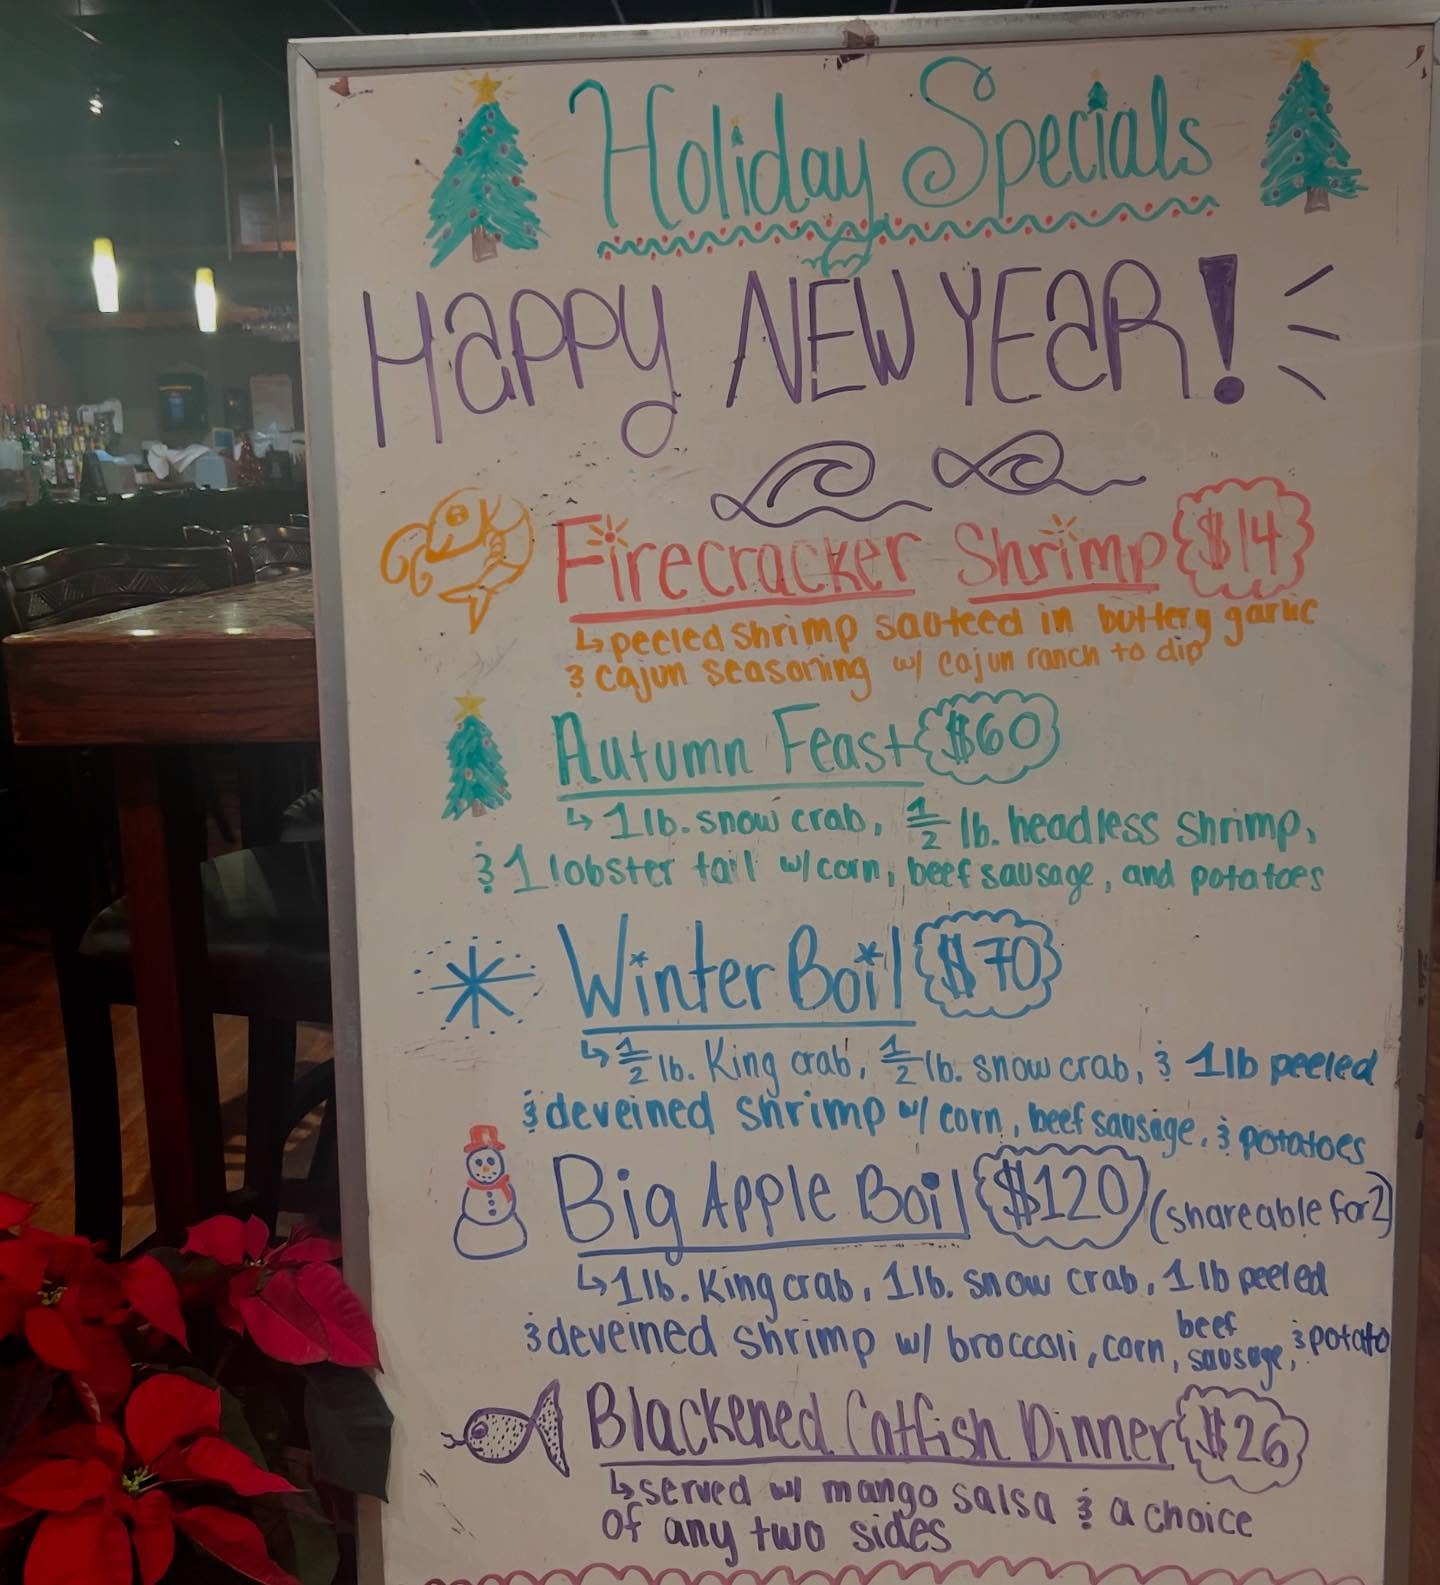 Holiday Specials
HAPPY NEW YEAR!
Firecracker Shrimp $14
↳ peeled shrimp sauteed in buttery garlic
& cajun seasoning w/ cajun ranch to dip
Autumn Feast $60
↳ 1 lb. snow crab, 1/2 lb. headless shrimp,
& 1 lobster tail w/ corn, beef sausage, and potatoes
Winter Boil $70
↳ 1/2 lb. King crab, 1/2 lb. snow crab, & 1 lb peeled
& deveined shrimp w/ corn, beef sausage, & potatoes
Big Apple Boil $120 (shareable for 2)
↳ 1 lb. King crab, 1 lb. snow crab, 1 lb peeled
& deveined shrimp w/ broccoli, corn, beef sausage, & potato
Blackened Catfish Dinner $26
↳ served w/ mango salsa & a choice
of any two sides